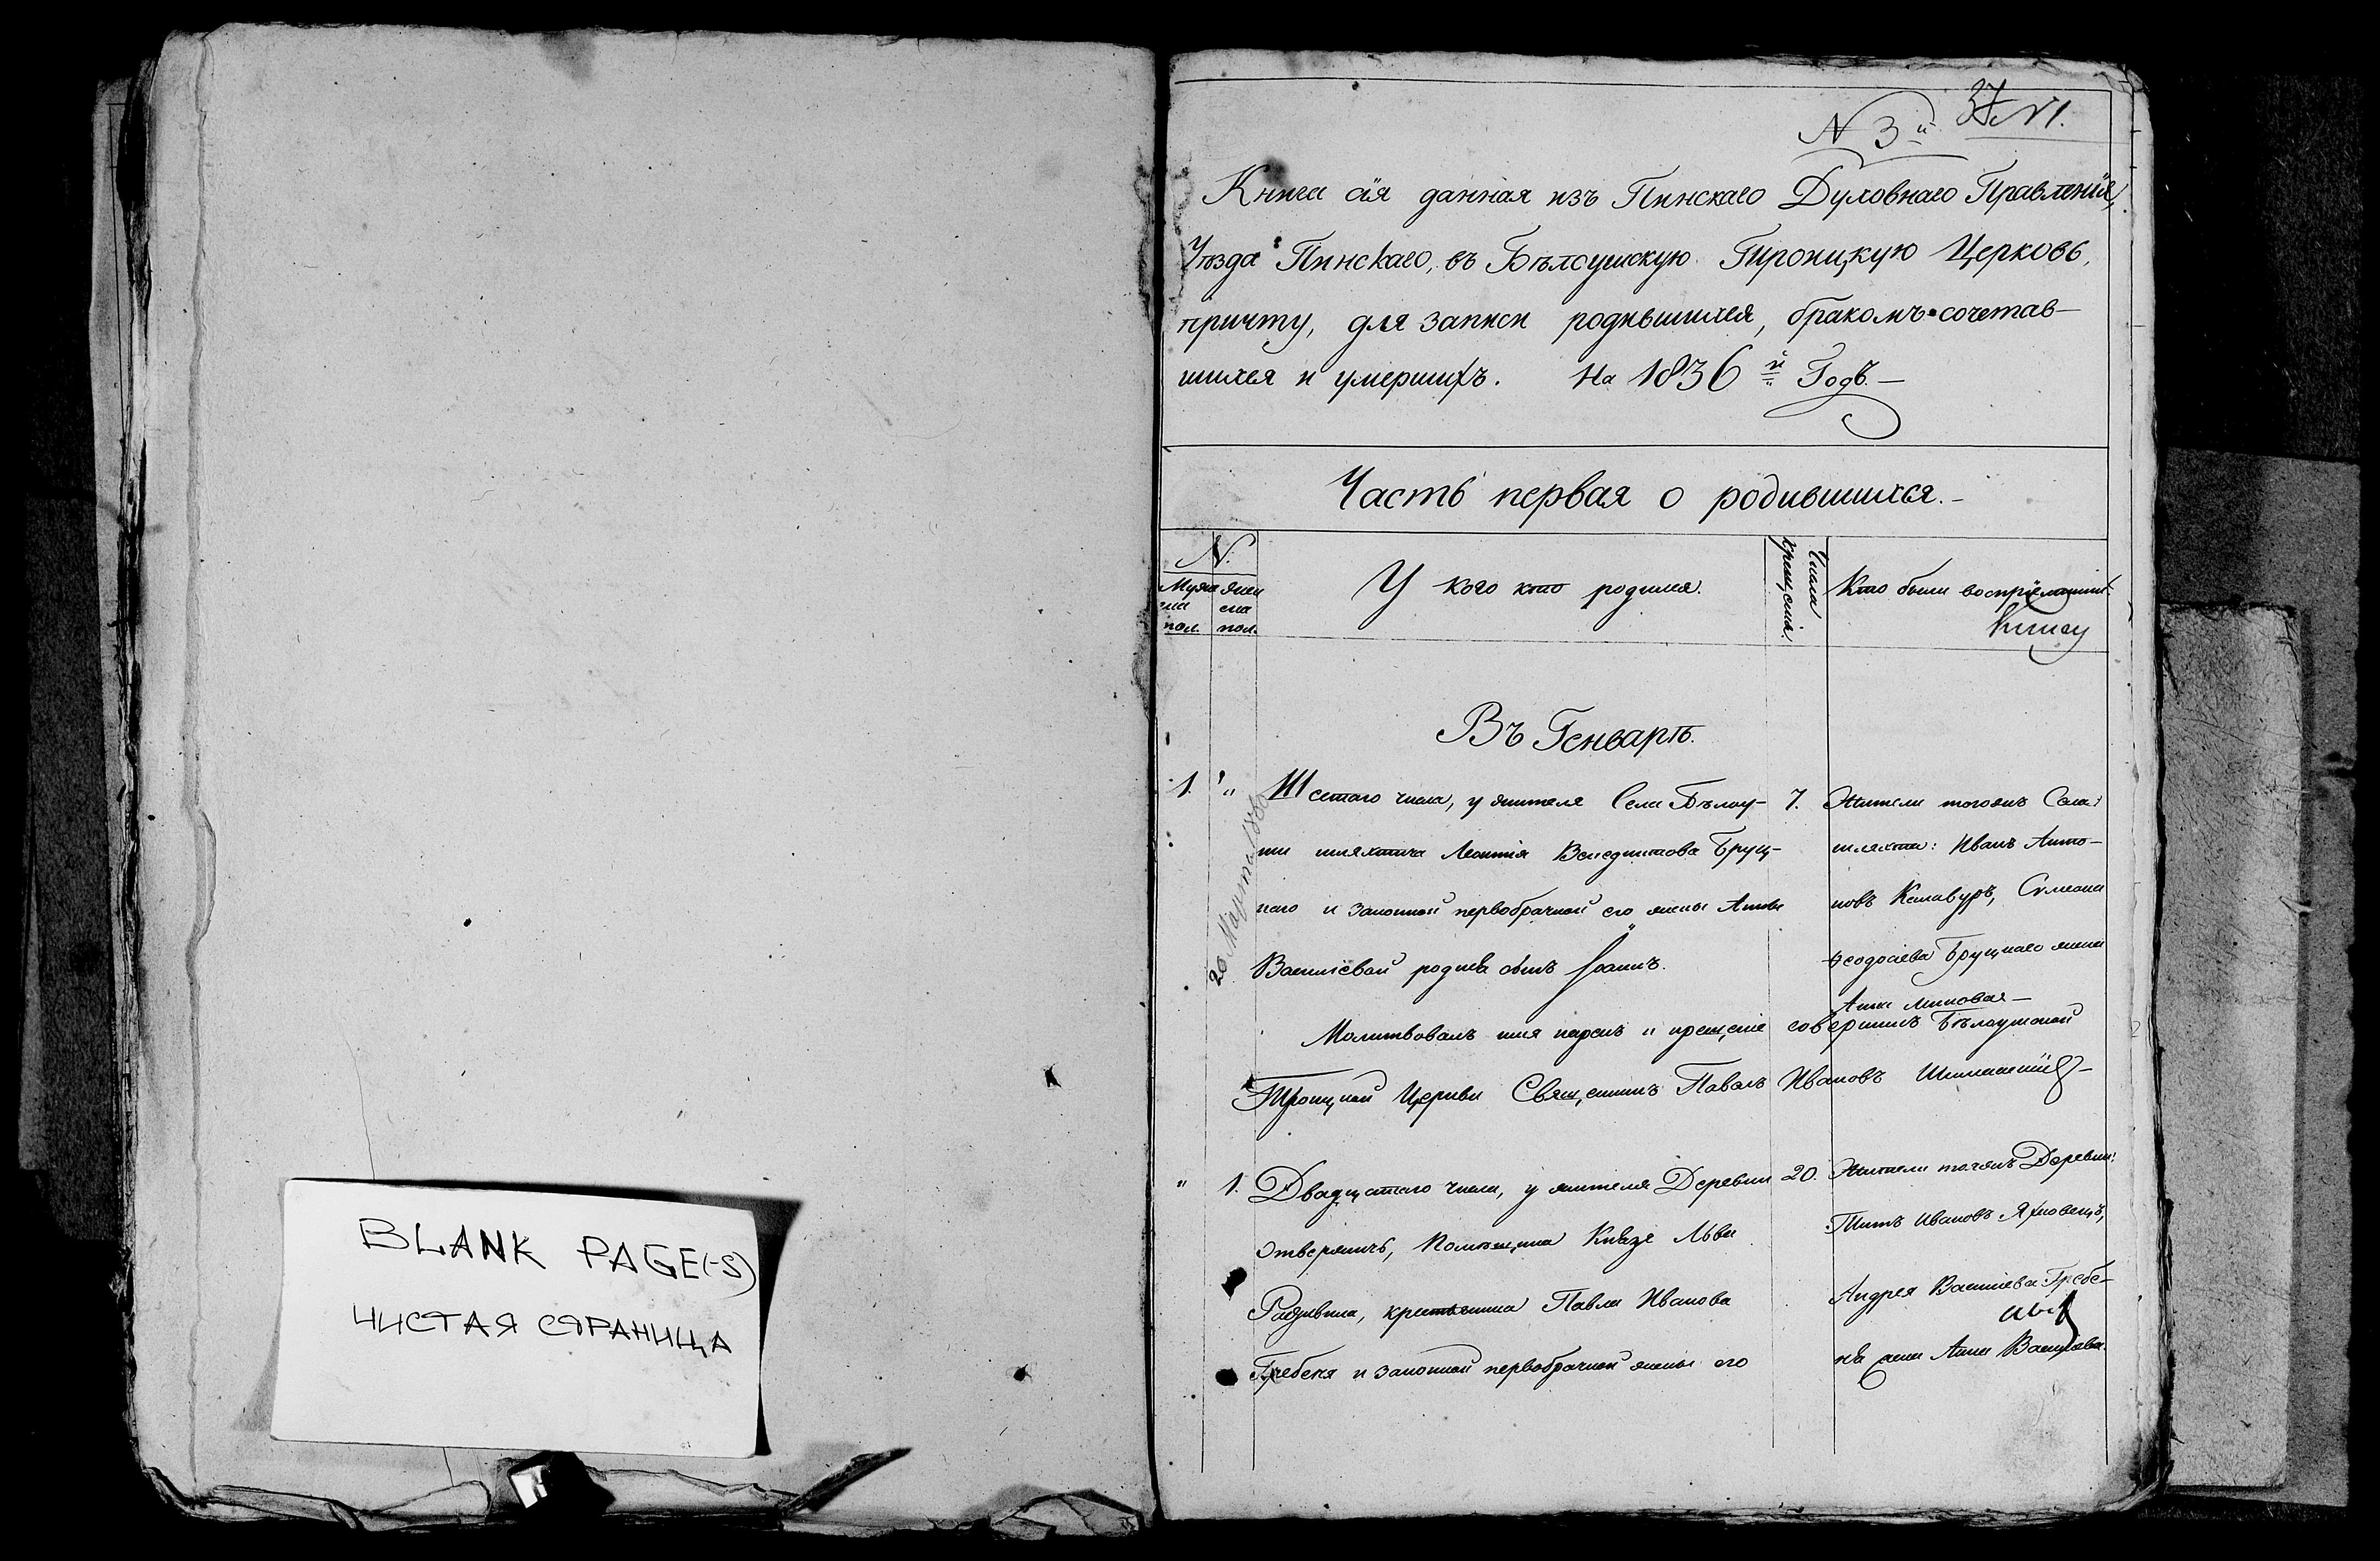 BLANK PAGE(-S)
ЧИСТАЯ СТРАНИЦА
N 3й
Книга сія данная изъ Пинскаго Духовнаго Правленія,
Уѣзда Пинскаго, въ Бѣлоушскую Троицкую Церковь,
причту, для записи родившихся, бракомъ сочетав-
шихся и умершихъ. На 1836й Годъ.—
Часть первая о родившихся.-
N.
Муже женс
ска ска
пол. пол.
У кого кто родился.
Числа
крещенія.
Кто были воспріемники.
Въ Генварѣ.
1. "
Шестаго числа, у жителя Села Бѣлоу-
ши шляхтича Леонтія Венедиктова Бруц-
каго и законной первобрачной его жены Анны
Василіевой родился сынъ Іоаннъ.
7.
Жители тогожъ Села:
шляхта: Иванъ Анто-
новъ Симеона
Ѳеодорова Бруцкаго жена
Анна
Молитвовалъ имя нарекъ и крещеніе совершилъ Бѣлоушской
Троицкой Церкви Священникъ Павелъ Ивановъ
20 Марта
" 1.
Двадцатаго числа, у жителя Деревни
Отвержичъ, Помѣщика Князя Льва
Радзивила, крестьянина Павла Иванова
Гребеня и законной первобрачной жены его
20.
Жители тоежъ Деревни:
Титъ Ивановъ
Андрея Василіева Гребе-
ня жена Анна